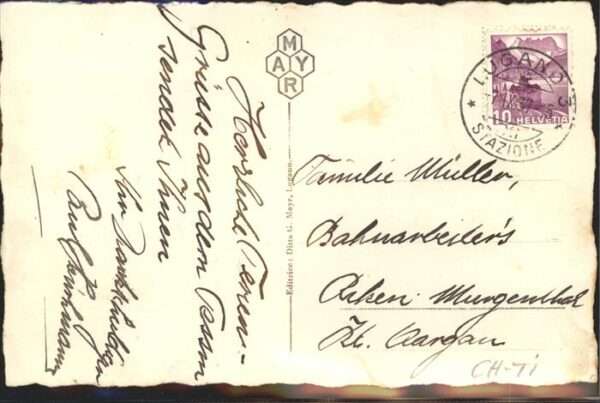 Herzliche Ferien-
Grüsse aus dem Tessin
sendet Ihnen
Ihr dankbarer
Paul
MAYR
Editrice: Ditta G. Mayr, Lugano.
LUGANO 3
STAZIONE
10 HELVETIA
Familie Müller,
Bahnarbeiter's
Murgenthal
Kt. Aargau
CH-TI